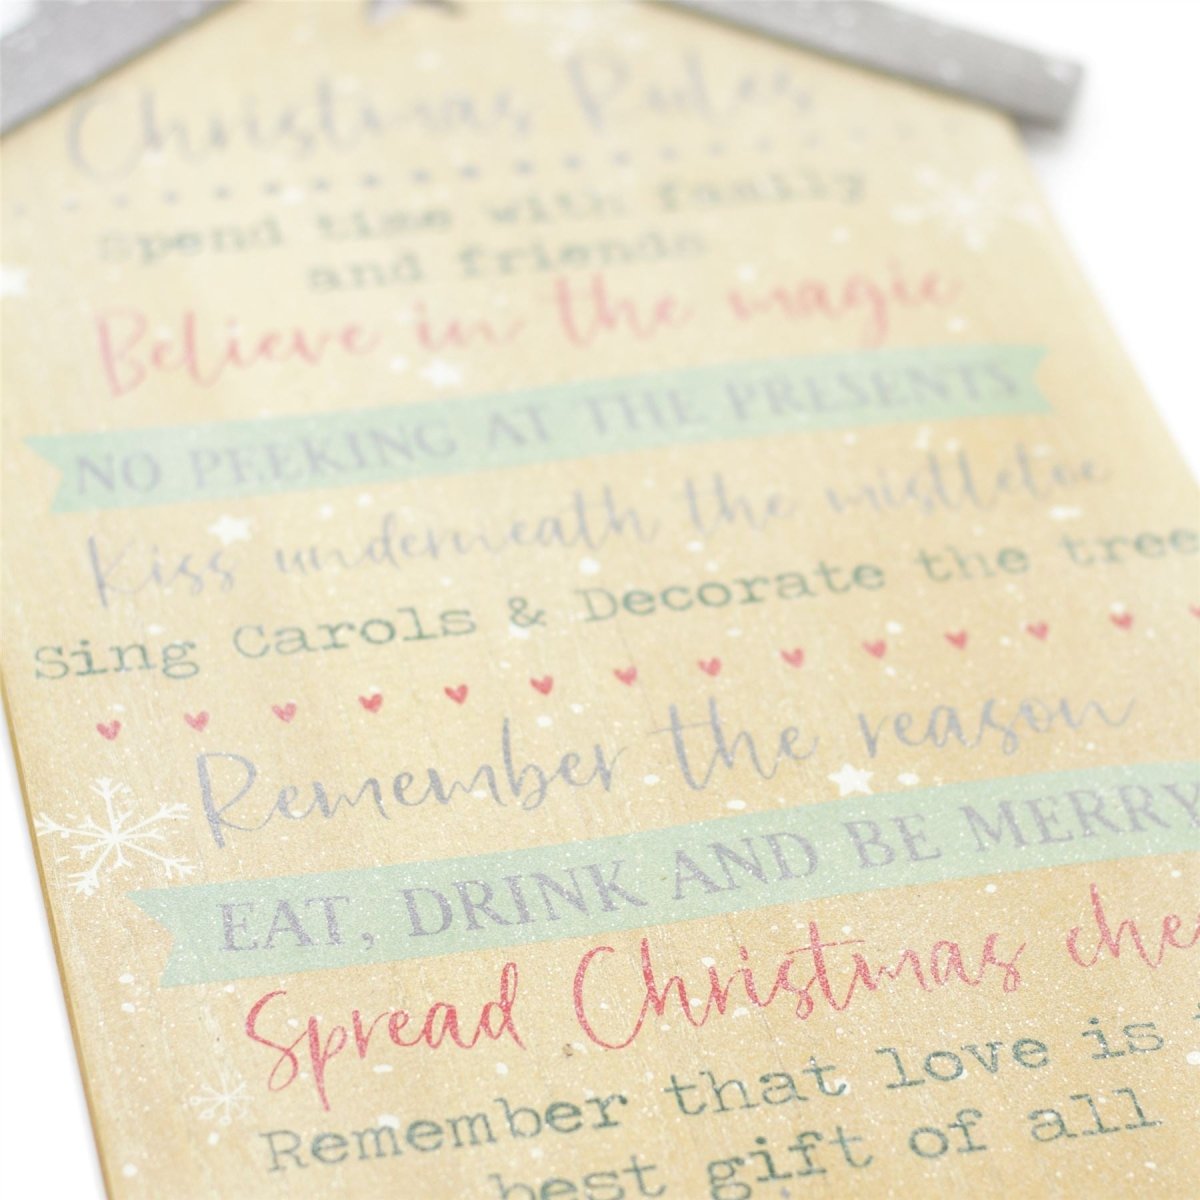 Christmas Rules
Spend time with family
and friends
Believe in the magic
NO PEEKING AT THE PRESENTS
Kiss underneath the mistletoe
Sing Carols & Decorate the tree
Remember the reason
EAT, DRINK AND BE MERRY
Spread Christmas
Remember that love is
best gift of all